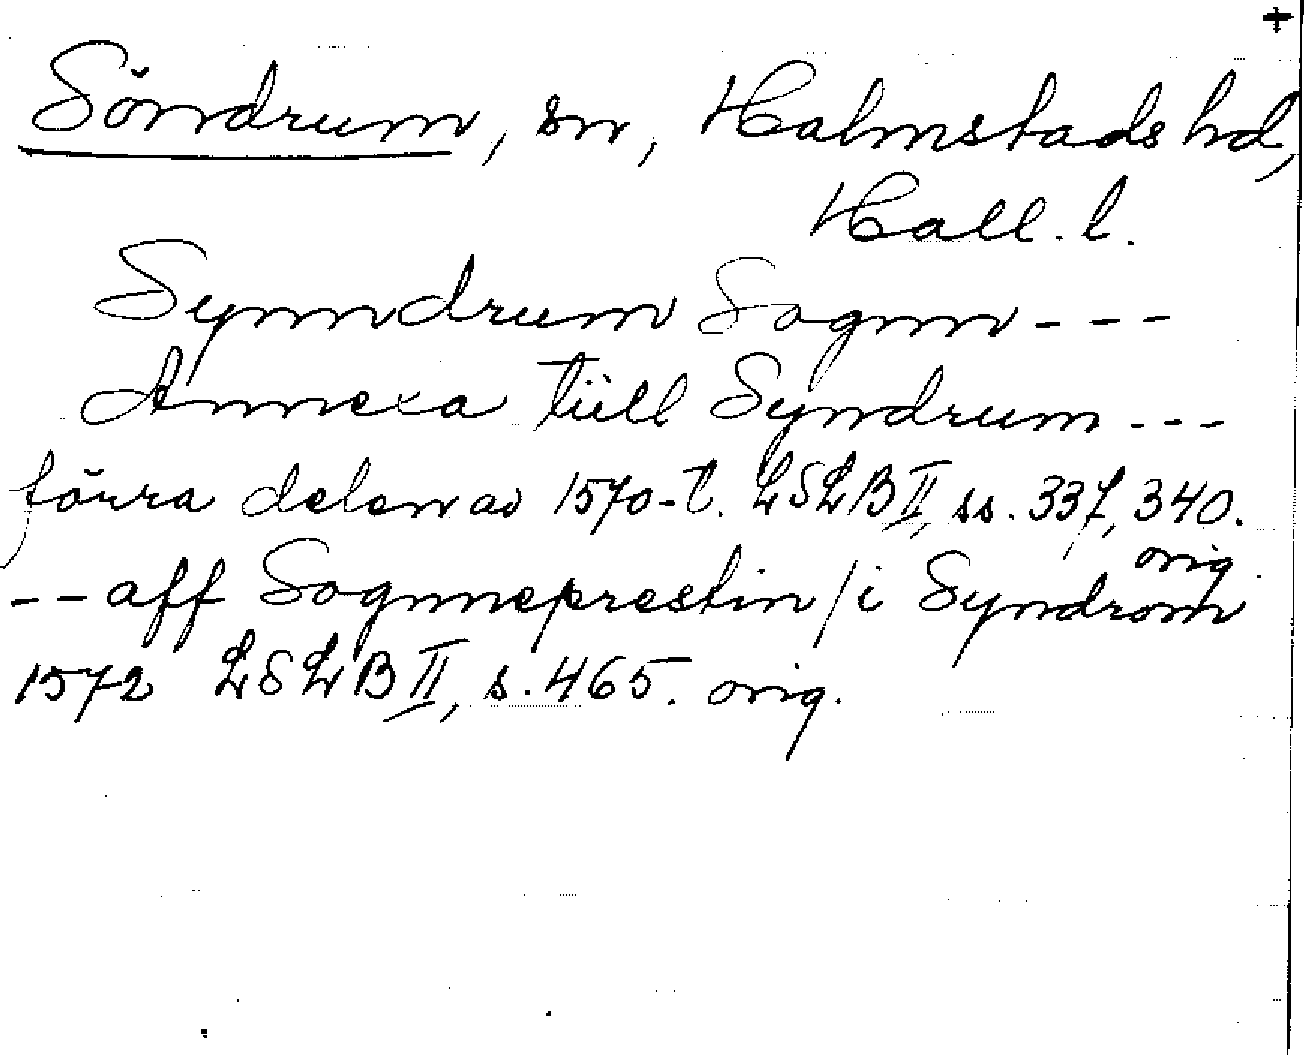 +
Söndrum, sn, Halmstads hd,
Hall. l.
Synndrum Sognn - - -
Annexa tiill Syndrum - - -
förra delen av 1570-t. LSLB II, ss. 337, 340.
orig.
- - aff Sognneprestin / i Syndrom
1572 LSLB II, s. 465. orig.